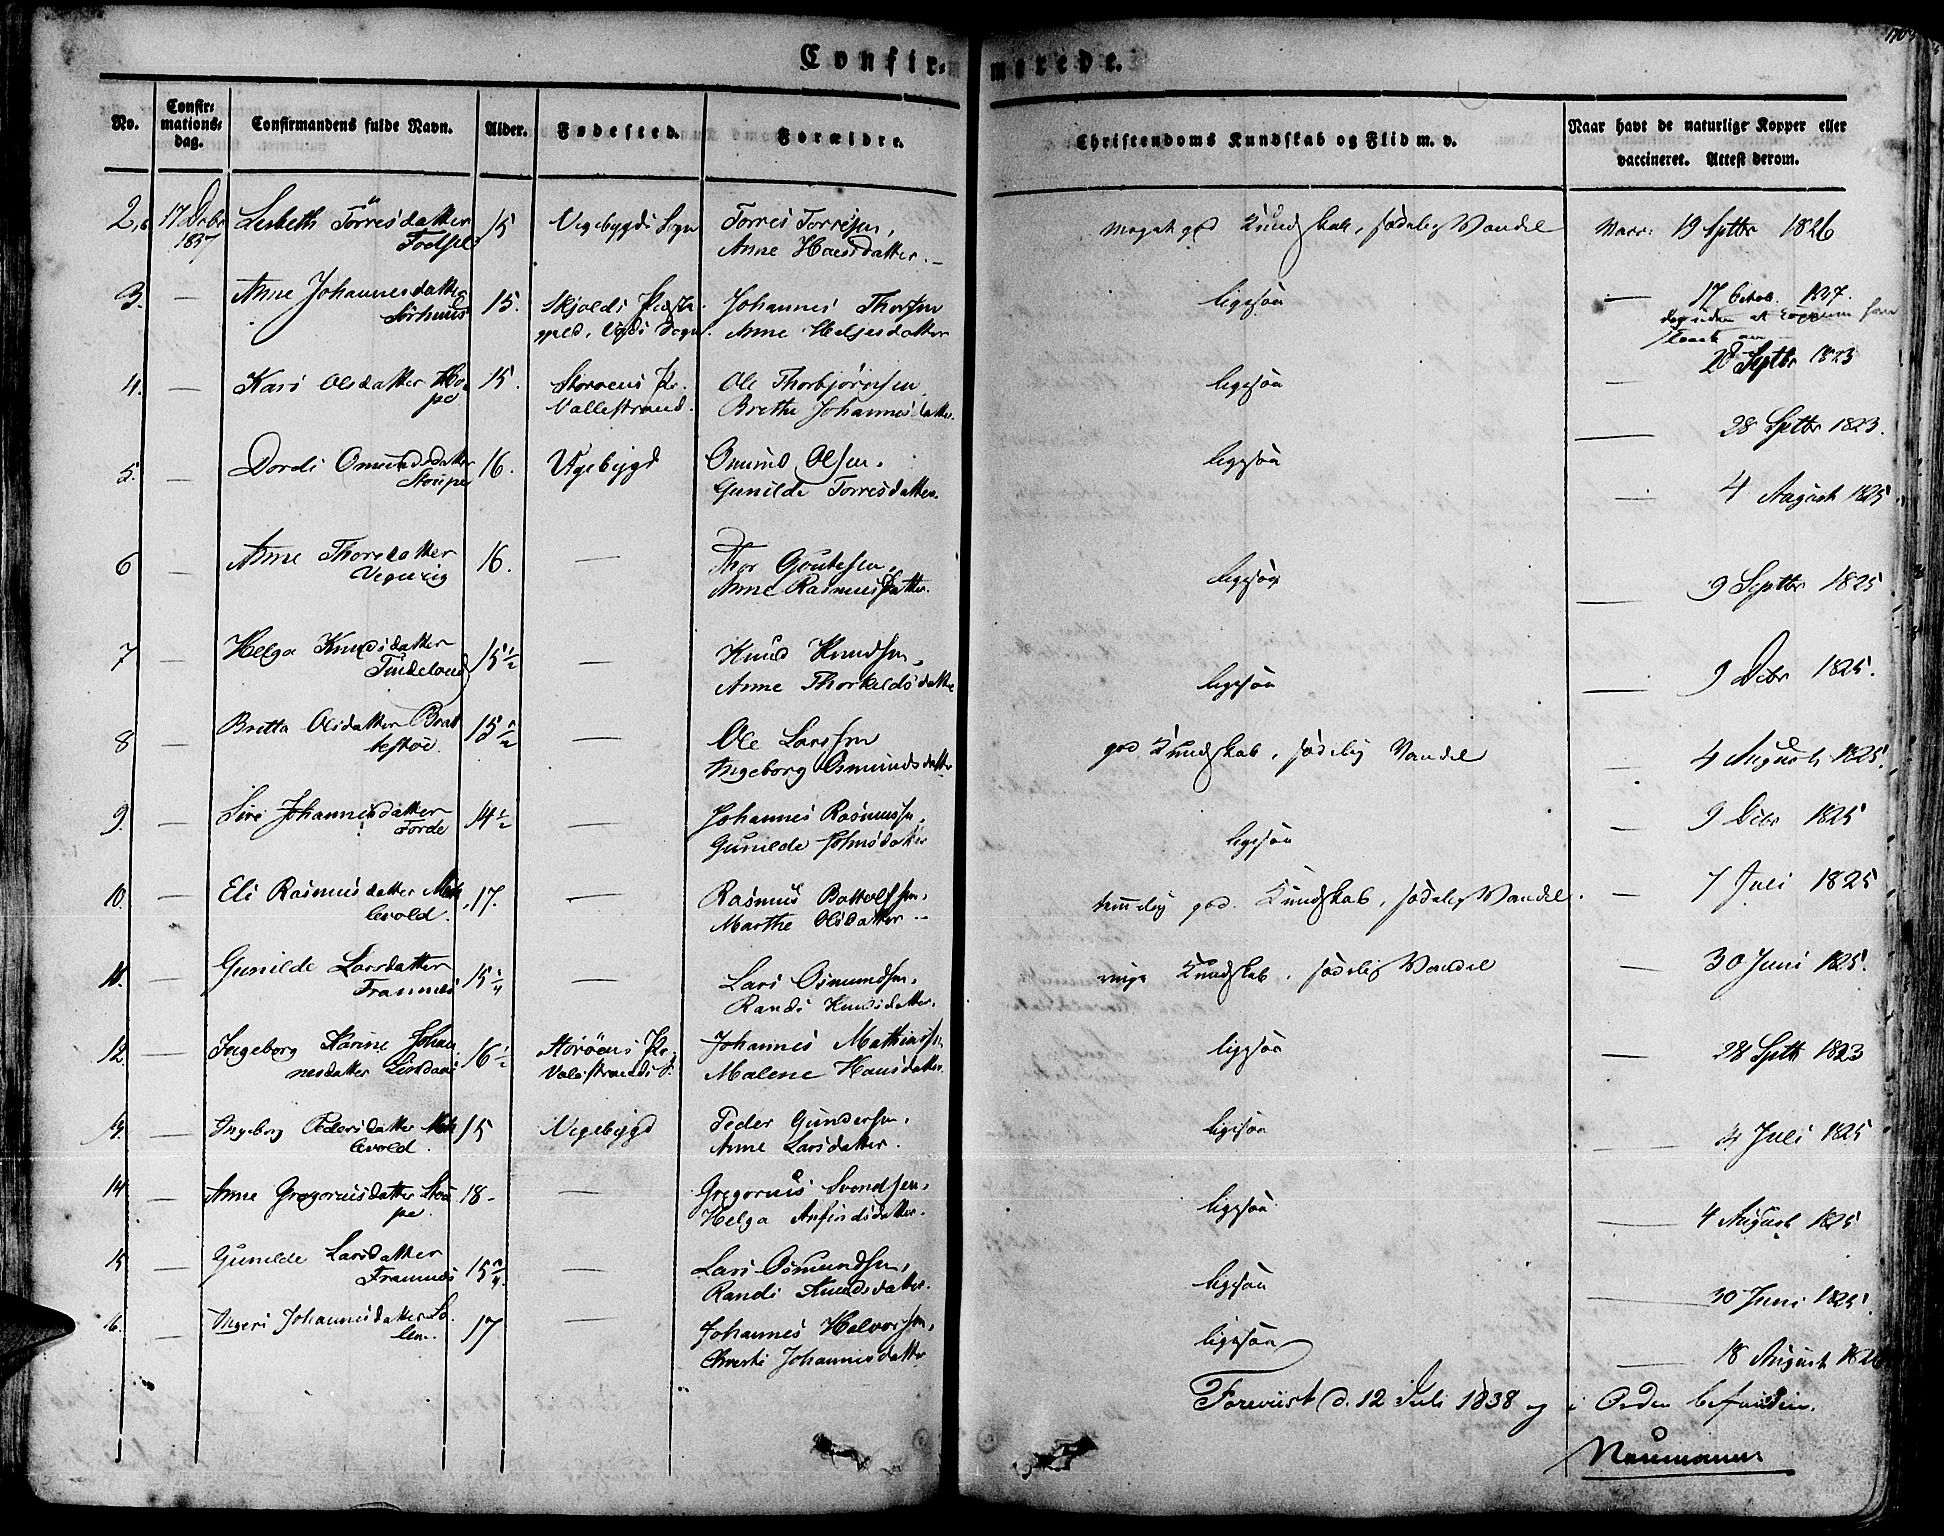 Confirmerede.
No. Confirmationsdag. Confirmandens fulde Navn. Alder. Fødested. Forældre. Christendoms Kundskab og Flid m. v. Naar havt de naturlige Kopper eller vaccineret. Attest derom.
2, 17 Debr 1837 Lisbeth Torresdatter 15 Vigebygds Sogn Torres Torresen, meget god Kundskab, sædelig Vandel Vacc: 19 Septbr 1826
Anne Hansdatter.
3. — Anne Johannesdatter 15. Skjolds Præste- Johannes Thorsen ligesaa — 17 1837.
gjeld, Sogn. Anne Helgesdatter
4. — Kari Olsdatter Ho- 15. Storøens Pr. Ole Thorbjørnsen ligesaa — 28 Septbr 1823
pe Vallestrand. Brethe Johannesdatter.
— 28 Septbr 1823.
5. — Dordi Omundsdatter 16. Vigebygd Omund Olsen. ligesaa
Støupe Gunilde Torresdatter. — 4 August 1825
6 — Anne Thorsdatter 16. — Thor Goutesen, ligesaa
Anne Rasmusdatter. — 9 Septbr 1825
7 — Helga Knudsdatter 15½ — Knud Knudsen,
Tindeland Anne Thorkildsdatter ligesaa — 9 Debr 1825.
8 — Britta Olsdatter Brat- 15½ — Ole Larssen god Kundskab, sædelig Vandel
testøe. Ingeborg Osmundsdatter — 4 August 1825.
9. — Siri Johannesdatter 14½ — Johannes Rasmussen, — 9 Debr 1825
Førde Gunilde Johnsdatter ligesaa
10. — Eli Rasmusdatter Mæh- 17. — Rasmus Bottolfsen, temelig god Kundskab, sædelig Vandel. — 7 Juli 1825
levold. Marthe Olsdatter
11. — Gunilde Larsdatter 15¼ — Lars Osmundsen, ringe Kundskab, sædelig Vandel — 30 Juni 1825.
Framnes Randi Knudsdatter.
12. — Ingeborg Karine Johan- 16½ Storøens Pr. Johannes Mathiassen ligesaa — 28 Septb 1823
nesdatter Valestrands S. Malene Hansdatter.
— Ingeborg Pedersdatter Mæh- 15 Vigebygd Peder Gundersen, ligesaa — 4 Juli 1825
levold. Anne Larsdatter.
14 — Anne Gregoriusdatter Støu- 18 — Gregorius Svendsen, ligesaa — 4 August 1825
pe. Helga Anfindsdatter.
15 — Gunilde Larsdatter 15¼ — Lars Osmundsen, ligesaa — 30 Juni 1825.
Framnes Randi Knudsdatter.
16. — Ingeri Johannesdatter 17 — Johannes Halvorsen, ligesaa
Christi Johannesdatter — 18 August 1826
Foreviist d. 12 Juli 1838 og i Orden befunden.
Neumann